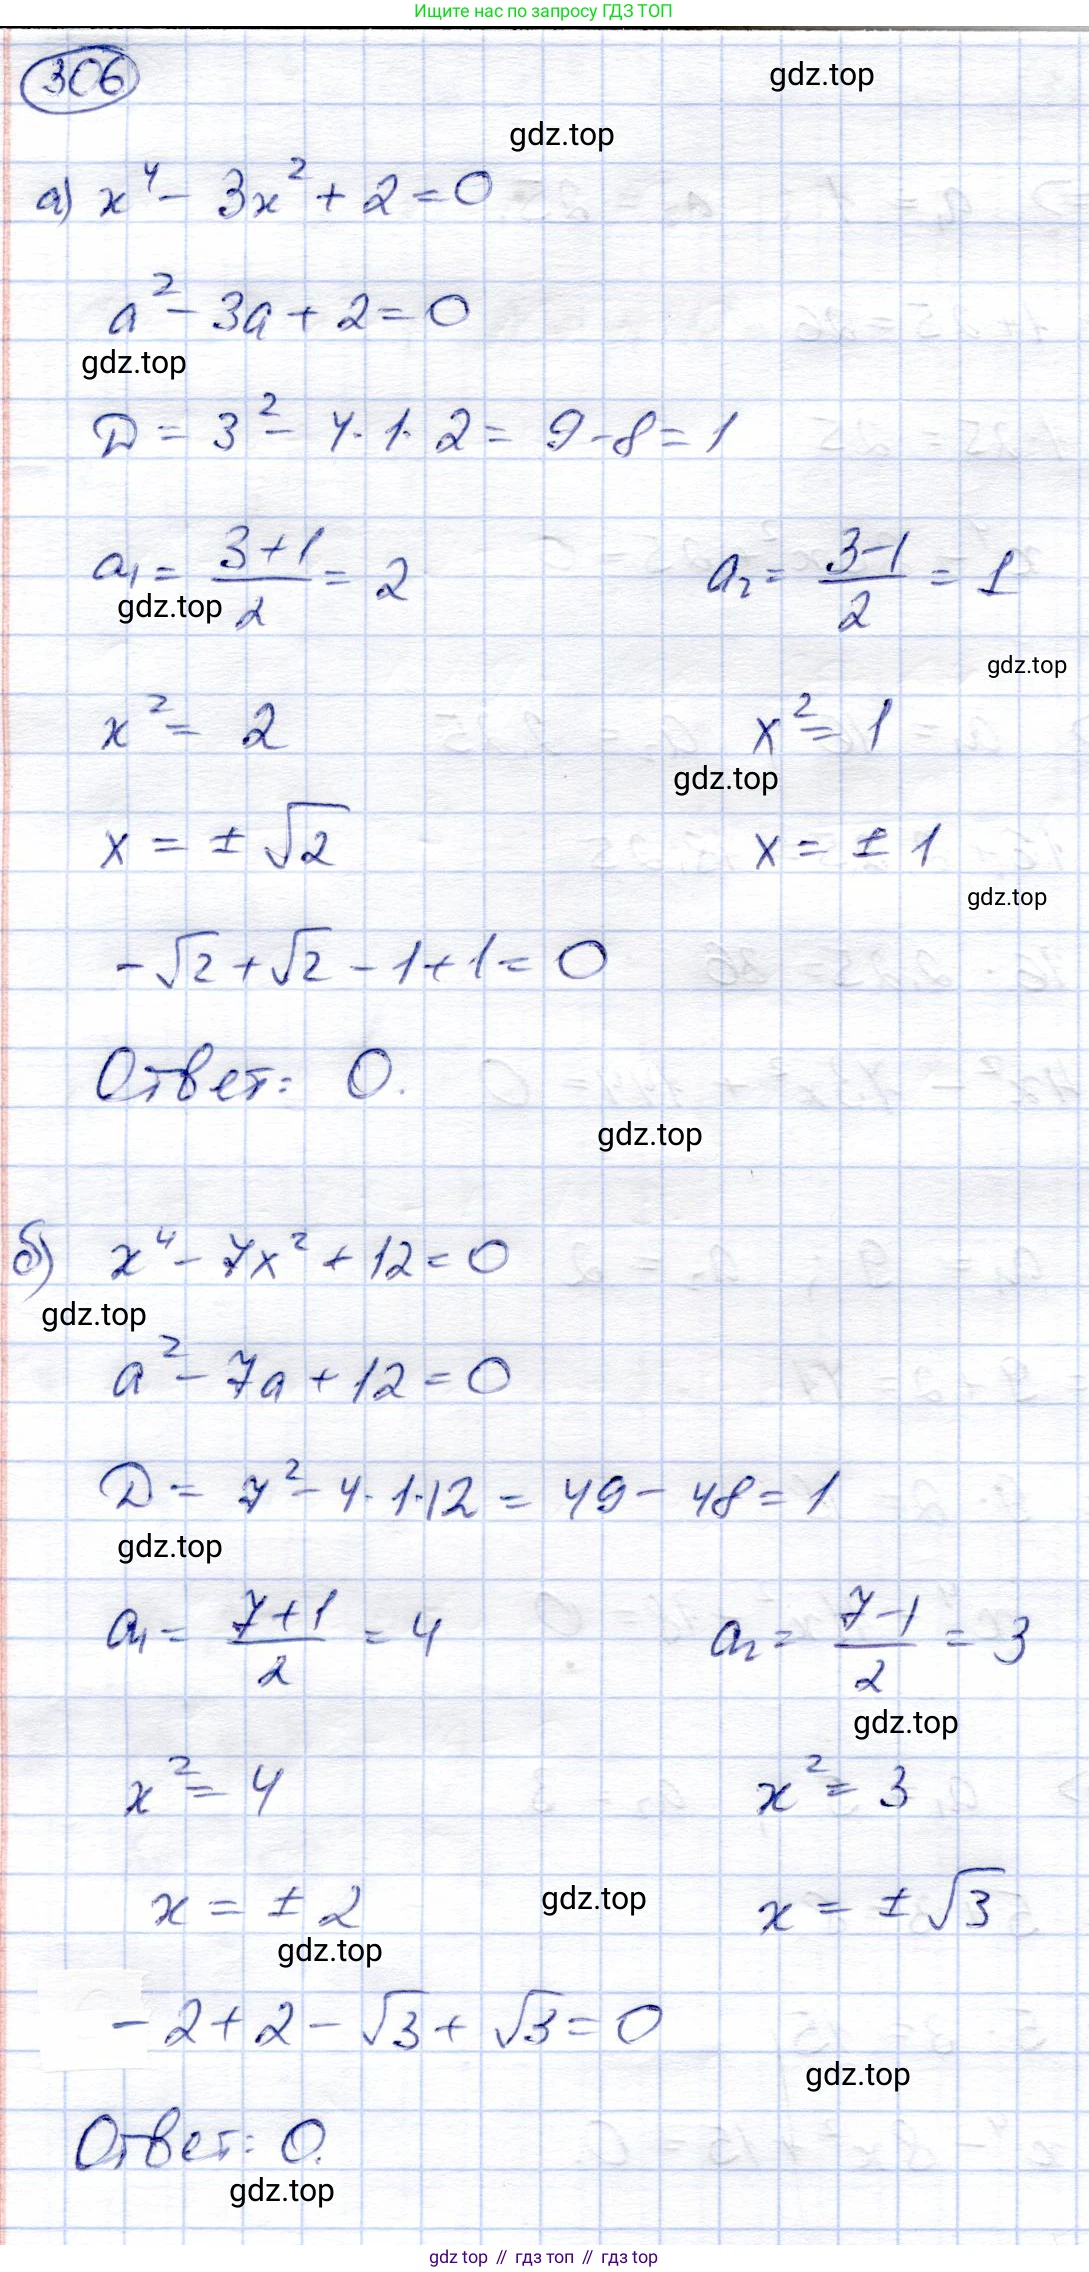 Ищите нас по запросу ГДЗ ТОП
306
gdz.top
gdz.top
а) x⁴ - 3x² + 2 = 0
a² - 3a + 2 = 0
gdz.top
D = 3² - 4·1·2 = 9 - 8 = 1
a₁ = (3+1)/2 = 2 a₂ = (3-1)/2 = 1
gdz.top
gdz.top
x² = 2 x² = 1
gdz.top
x = ± √2 x = ± 1
gdz.top
-√2 + √2 - 1 + 1 = 0
Ответ: 0.
gdz.top
б) x⁴ - 7x² + 12 = 0
gdz.top
a² - 7a + 12 = 0
D = 7² - 4·1·12 = 49 - 48 = 1
gdz.top
a₁ = (7+1)/2 = 4 a₂ = (7-1)/2 = 3
gdz.top
x² = 4 x² = 3
x = ± 2 gdz.top x = ± √3
gdz.top
- 2 + 2 - √3 + √3 = 0
gdz.top
Ответ: 0.
gdz.top
gdz.top // гдз топ // gdz.top